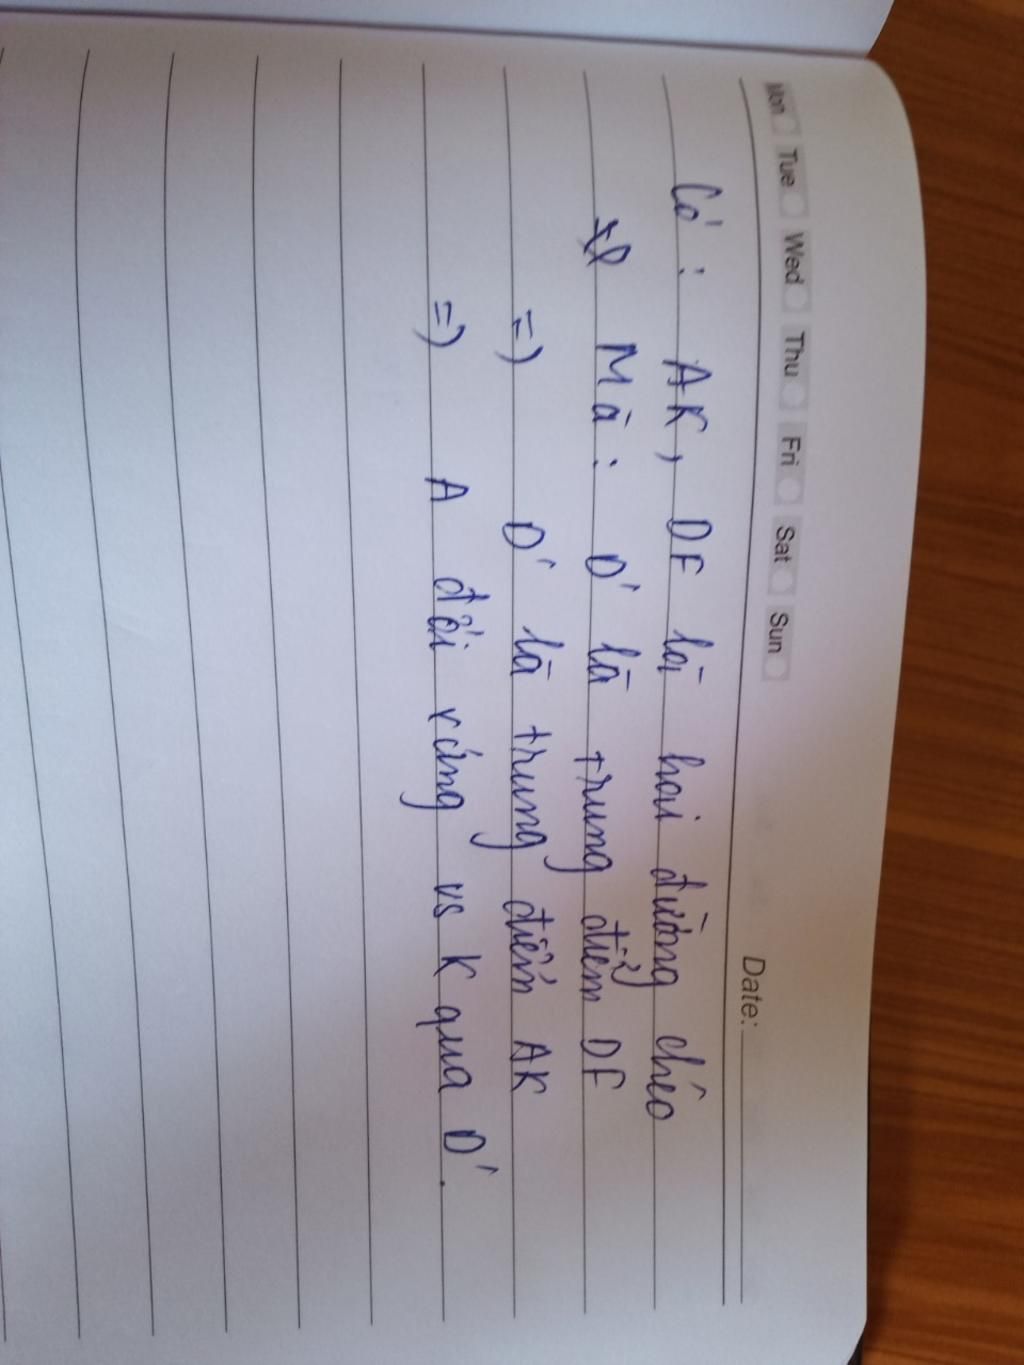 Mon Tue Wed Thu Fri Sat Sun
Date:
Có : AK, DF là hai đường chéo
Mà : O' là trung điểm DF
=) O' là trung điểm AK
=) A đối xứng vs K qua O'.